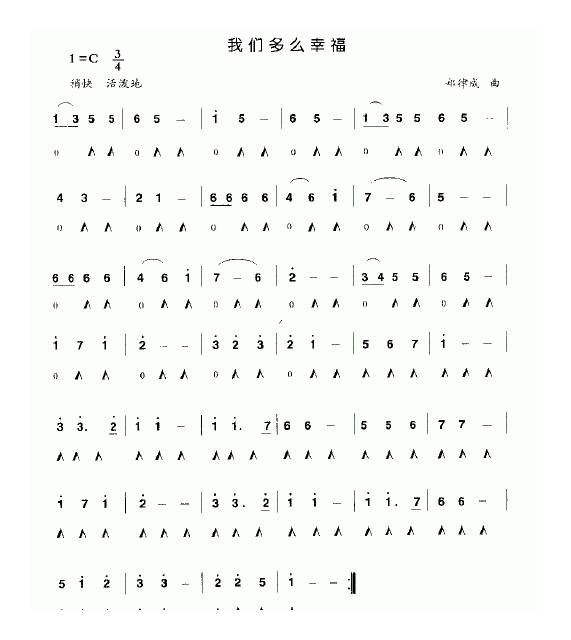 我们多么幸福
1=C 3/4
稍快 活泼地 郑律成 曲
1 3 5 5 | 6 5 – | i 5 – | 6 5 – | 1 3 5 5 | 6 5 – |
0 ∧ ∧ 0 ∧ ∧ 0 ∧ ∧ 0 ∧ ∧ 0 ∧ ∧ 0 ∧ ∧
4 3 – | 2 1 – | 6 6 6 6 | 4 6 i | 7 – 6 | 5 – – |
0 ∧ ∧ 0 ∧ ∧ 0 ∧ ∧ 0 ∧ ∧ 0 ∧ ∧ 0 ∧ ∧
6 6 6 6 | 4 6 i | 7 – 6 | 2̇ – – | 3 4 5 5 | 6 5 – |
0 ∧ ∧ 0 ∧ ∧ 0 ∧ ∧ 0 ∧ ∧ 0 ∧ ∧ 0 ∧ ∧
i 7 i | 2̇ – – | 3̇ 2̇ 3̇ | 2̇ i – | 5 6 7 | i – – |
0 ∧ ∧ 0 ∧ ∧ 0 ∧ ∧ 0 ∧ ∧ 0 ∧ ∧ 0 ∧ ∧
3̇ 3̇. 2̇ | i i – | i i. 7 | 6 6 – | 5 5 6 | 7 7 – |
∧ ∧ ∧ ∧ ∧ ∧ ∧ ∧ ∧ ∧ ∧ ∧ ∧ ∧ ∧ ∧ ∧ ∧
i 7 i | 2̇ – – | 3̇ 3̇. 2̇ | i i – | i i. 7 | 6 6 – |
∧ ∧ ∧ ∧ ∧ ∧ ∧ ∧ ∧ ∧ ∧ ∧ ∧ ∧ ∧ ∧ ∧ ∧
5 i 2̇ | 3̇ 3̇ – | 2̇ 2̇ 5 | i – – :‖
∧ ∧ ∧ ∧ ∧ ∧ ∧ ∧ ∧ ∧ ∧ ∧